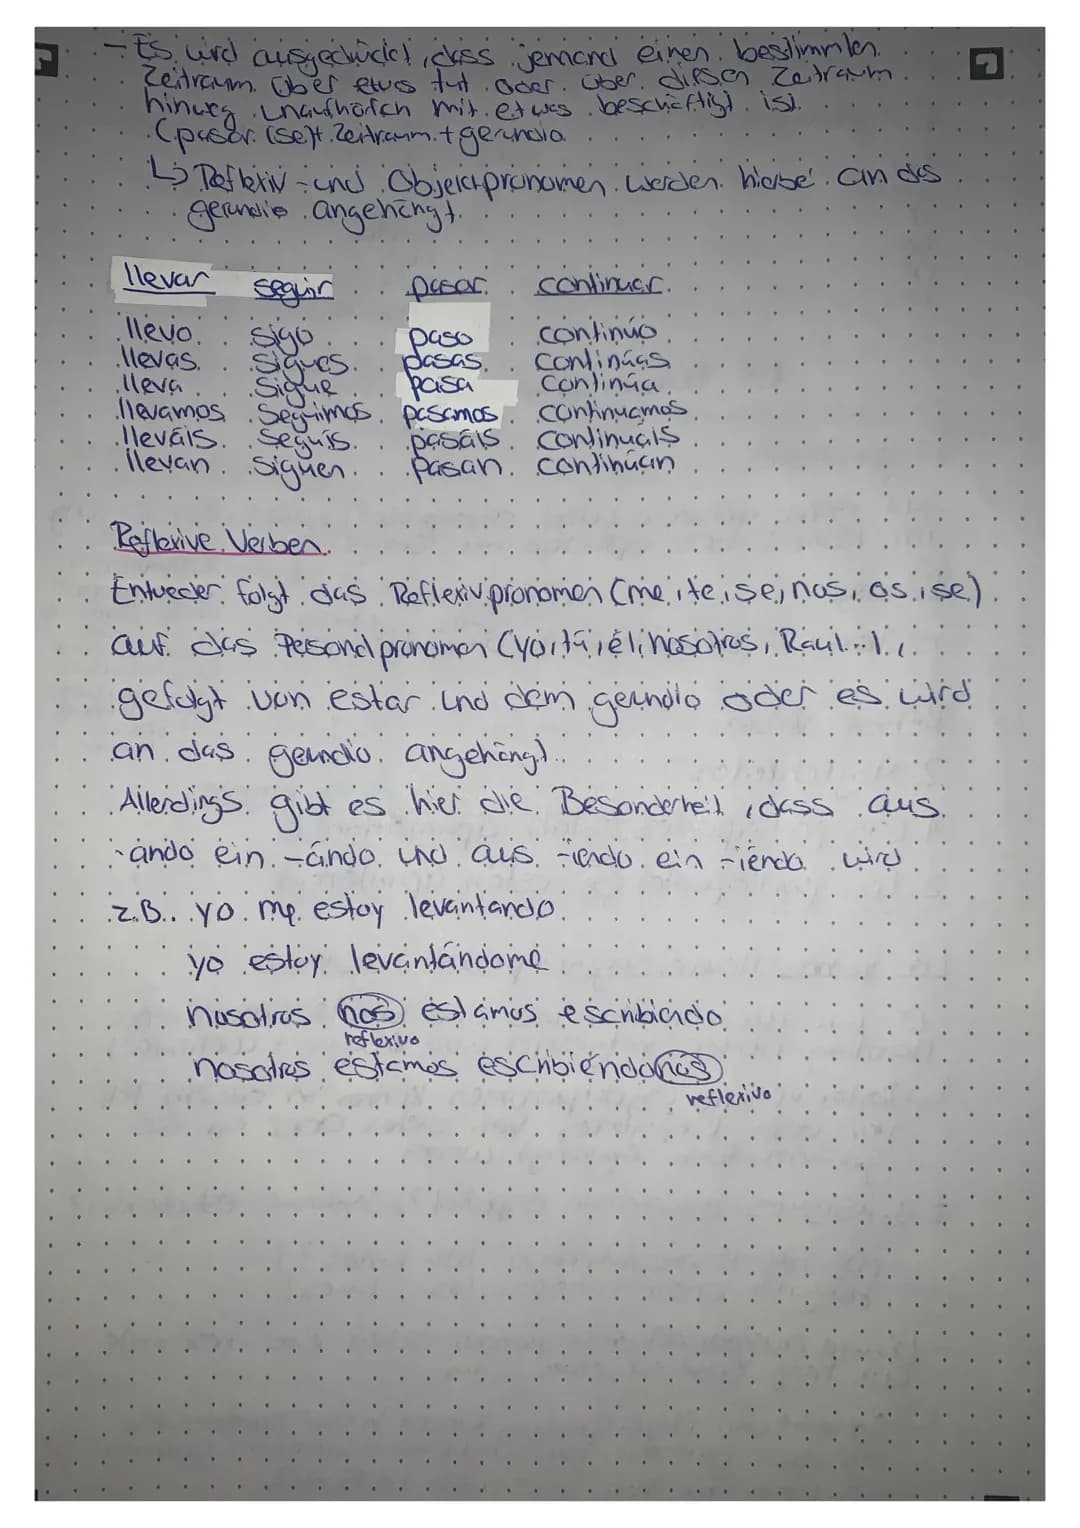 - Es wird ausgedrückt, dass jemand einen bestimmten
Zeitraum über etwas tut oder über diesen Zeitraum
hinweg unaufhörlich mit etwas beschäftigt ist.
(pasar (se)+ Zeitraum + gerundio
↳ Reflexiv- und Objektpronomen werden hierbei an das
gerundio angehängt.
llevar seguir pasar continuar
llevo sigo paso continúo
llevas sigues pasas continúas
lleva sigue pasa continúa
llevamos seguimos pasamos continuamos
lleváis seguís pasáis continuáis
llevan siguen pasan continúan
Reflexive Verben
Entweder folgt das Reflexivpronomen (me, te, se, nos, os, se)
auf das Personalpronomen (yo, tú, él, nosotros, Raúl...),
gefolgt von estar und dem gerundio oder es wird
an das gerundio angehängt.
Allerdings gibt es hier die Besonderheit, dass aus
-ando ein -ándo und aus -iendo ein -iéndo wird
z.B. yo me estoy levantando
yo estoy levantándome
nosotros nos estamos escribiendo
reflexivo
nosotros estamos escribiéndonos
reflexivo